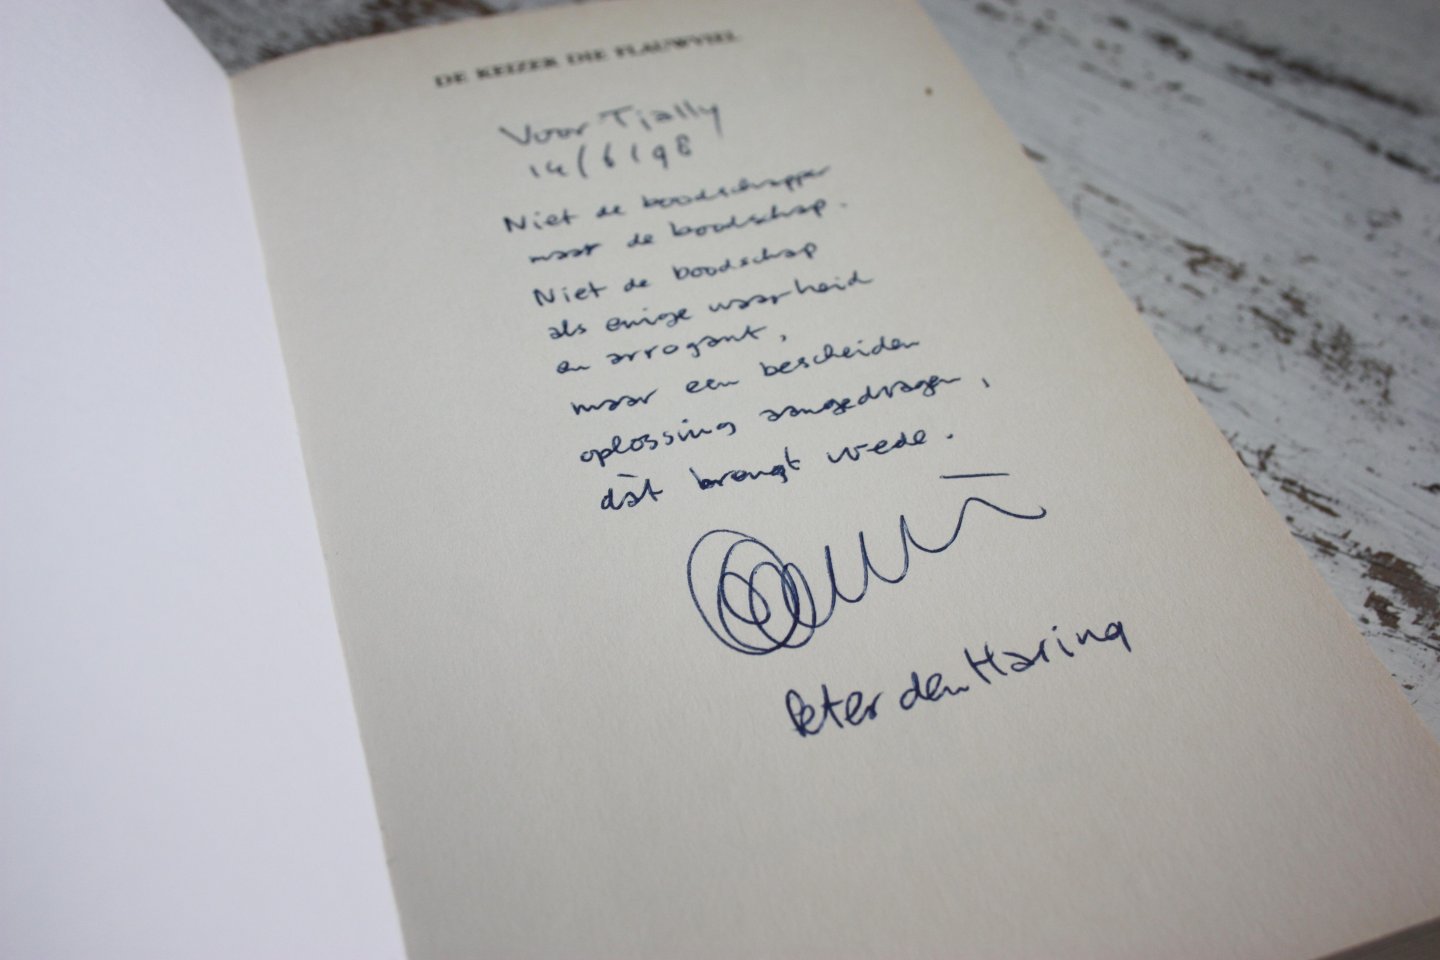 DE KEIZER DIE FLAUWVIEL
Voor Tjally
14/6/98
Niet de boodschapper
maar de boodschap.
Niet de boodschap
als enige waarheid
en arrogant,
maar een bescheiden
oplossing aangedragen,
dàt brengt vrede.
Peter den Haring